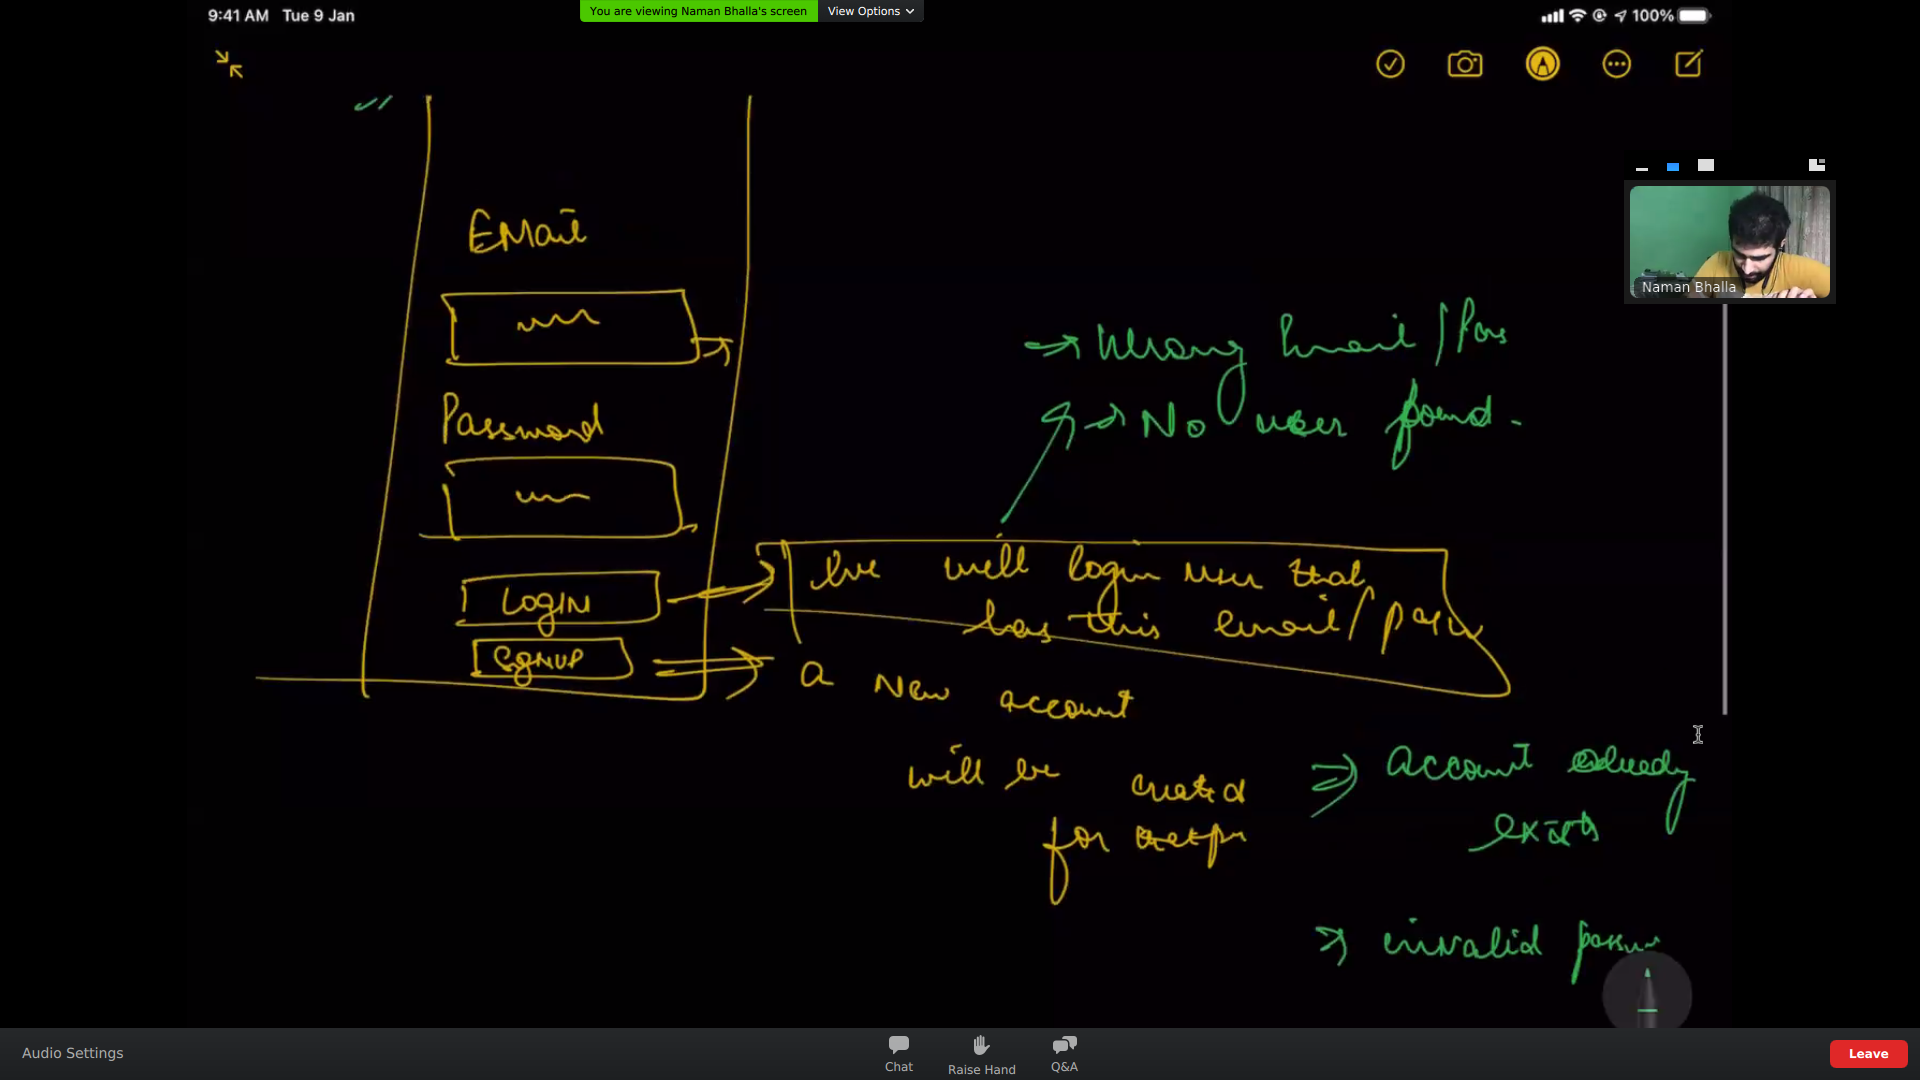 9:41 AM Tue 9 Jan
You are viewing Naman Bhalla's screen
View Options
100%
Naman Bhalla
Email
→ Wrong Email / Pass
→ No user found.
Password
LOGIN
we will login user that
has this email / pass
SIGNUP
a New account
will be created
for
Account already
exists
invalid
Audio Settings
Chat
Raise Hand
Q&A
Leave